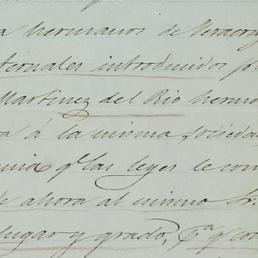 a hermanos de Veracru
ternales introducidos p
Martinez del Rio hermo
a á la misma, soiseda
uia q. las leyes le con
e ahora al mismo Sr.
lugar y grado, Pa q. co